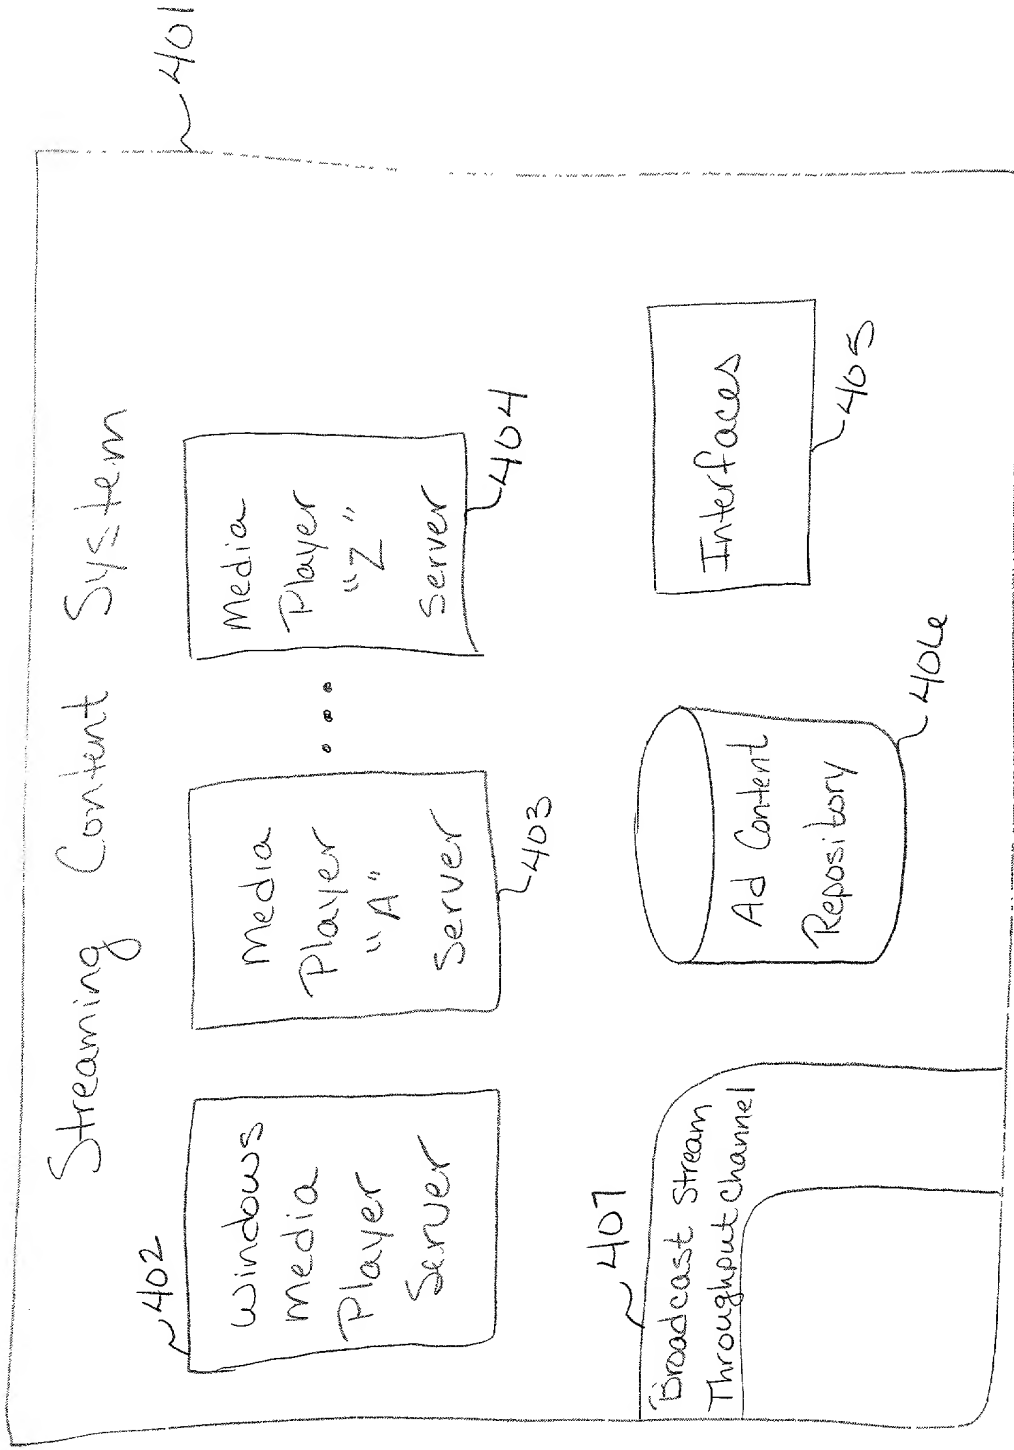 Streaming Content System
401
402
Windows
Media
Player
Server
Media
Player
"A"
Server
403
...
Media
Player
"Z"
Server
404
407
Broadcast Stream
Throughput Channel
Ad Content
Repository
406
Interfaces
405